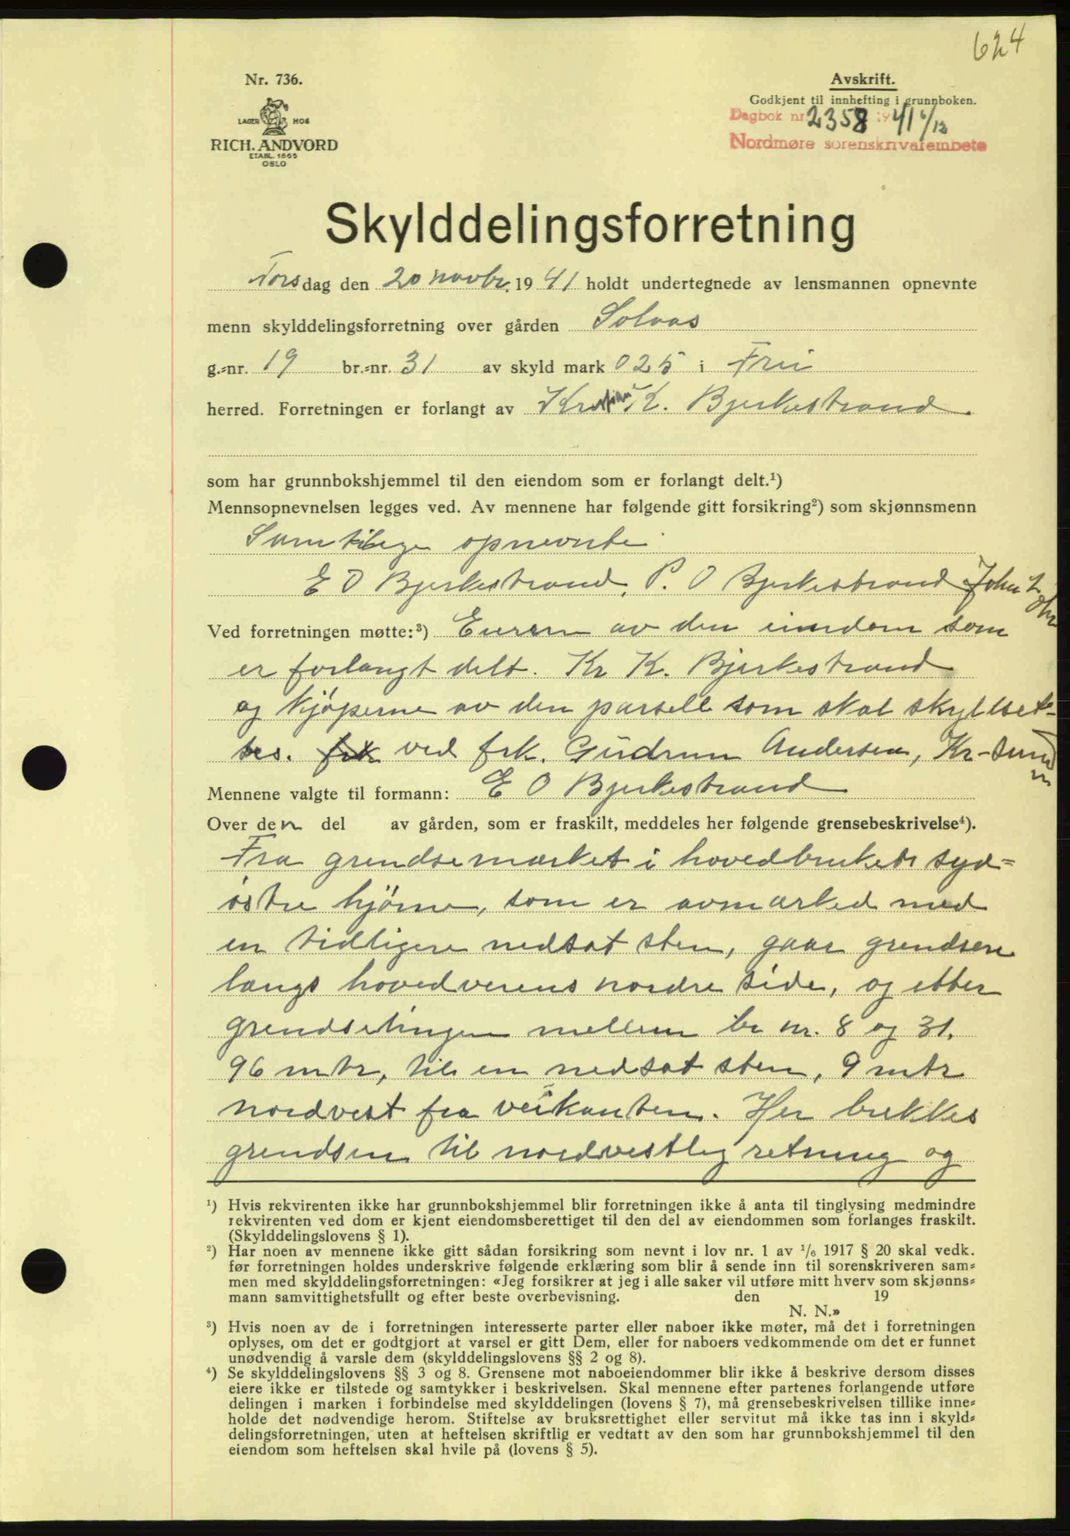 624
Nr. 736.
LAGER HOS
RICH. ANDVORD
ETABL. 1865
OSLO
Avskrift.
Godkjent til innhefting i grunnboken.
Dagbok nr 2358 1941 6/12
Nordmøre sorenskriverembete
Skylddelingsforretning
Torsdag den 20 novbr. 1941 holdt undertegnede av lensmannen opnevnte
menn skylddelingsforretning over gården Solaas
g.=nr. 19 br.=nr. 31 av skyld mark 025 i Frei
herred. Forretningen er forlangt av Kristian K. Bjerkestrand
som har grunnbokshjemmel til den eiendom som er forlangt delt.¹)
Mennsopnevnelsen legges ved. Av mennene har følgende gitt forsikring²) som skjønnsmenn
Samtlige opnevnte
E O Bjerkestrand, P. O Bjerkestrand John
Ved forretningen møtte:³) Eieren av den eiendom som
er forlangt delt. Kr K. Bjerkestrand
og kjøperne av den parsell som skal skyldset-
tes. frk ved frk. Gudrun Andersen, Kr-sund
Mennene valgte til formann: E O Bjerkestrand
Over den del av gården, som er fraskilt, meddeles her følgende grensebeskrivelse⁴).
Fra grendsemærket i hovedbrukets syd=
østre hjørne, som er avmærked med
en tidligere nedsat sten, gaar grendsen
langs hovedveiens nordre side, og etter
grendselinjen mellem br nr. 8 og 31.
96 mtr, til en nedsat sten, 9 mtr
nordvest fra veikanten. Her brekkes
grendsen til nordvestlig retning og
¹) Hvis rekvirenten ikke har grunnbokshjemmel blir forretningen ikke å anta til tinglysing medmindre
rekvirenten ved dom er kjent eiendomsberettiget til den del av eiendommen som forlanges fraskilt.
(Skylddelingslovens § 1).
²) Har noen av mennene ikke gitt sådan forsikring som nevnt i lov nr. 1 av ¹/₆ 1917 § 20 skal vedk.
før forretningen holdes underskrive følgende erklæring som blir å sende inn til sorenskriveren sam=
men med skylddelingsforretningen: «Jeg forsikrer at jeg i alle saker vil utføre mitt hverv som skjønns=
mann samvittighetsfullt og efter beste overbevisning. den 19
N. N.»
³) Hvis noen av de i forretningen interesserte parter eller naboer ikke møter, må det i forretningen
oplyses, om det er godtgjort at varsel er gitt Dem, eller for naboers vedkommende om det er funnet
unødvendig å varsle dem (skylddelingslovens §§ 2 og 8).
⁴) Se skylddelingslovens §§ 3 og 8. Grensene mot naboeiendommer blir ikke å beskrive dersom disses
eiere ikke er tilstede og samtykker i beskrivelsen. Skal mennene efter partenes forlangende utføre
delingen i marken i forbindelse med skylddelingen (lovens § 7), må grensebeskrivelsen tillike inne=
holde det nødvendige herom. Stiftelse av bruksrettighet eller servitut må ikke tas inn i skyld=
delingsforretningen, uten at heftelsen skriftlig er vedtatt av den som har grunnbokshjemmel til den
eiendom som heftelsen skal hvile på (lovens § 5).